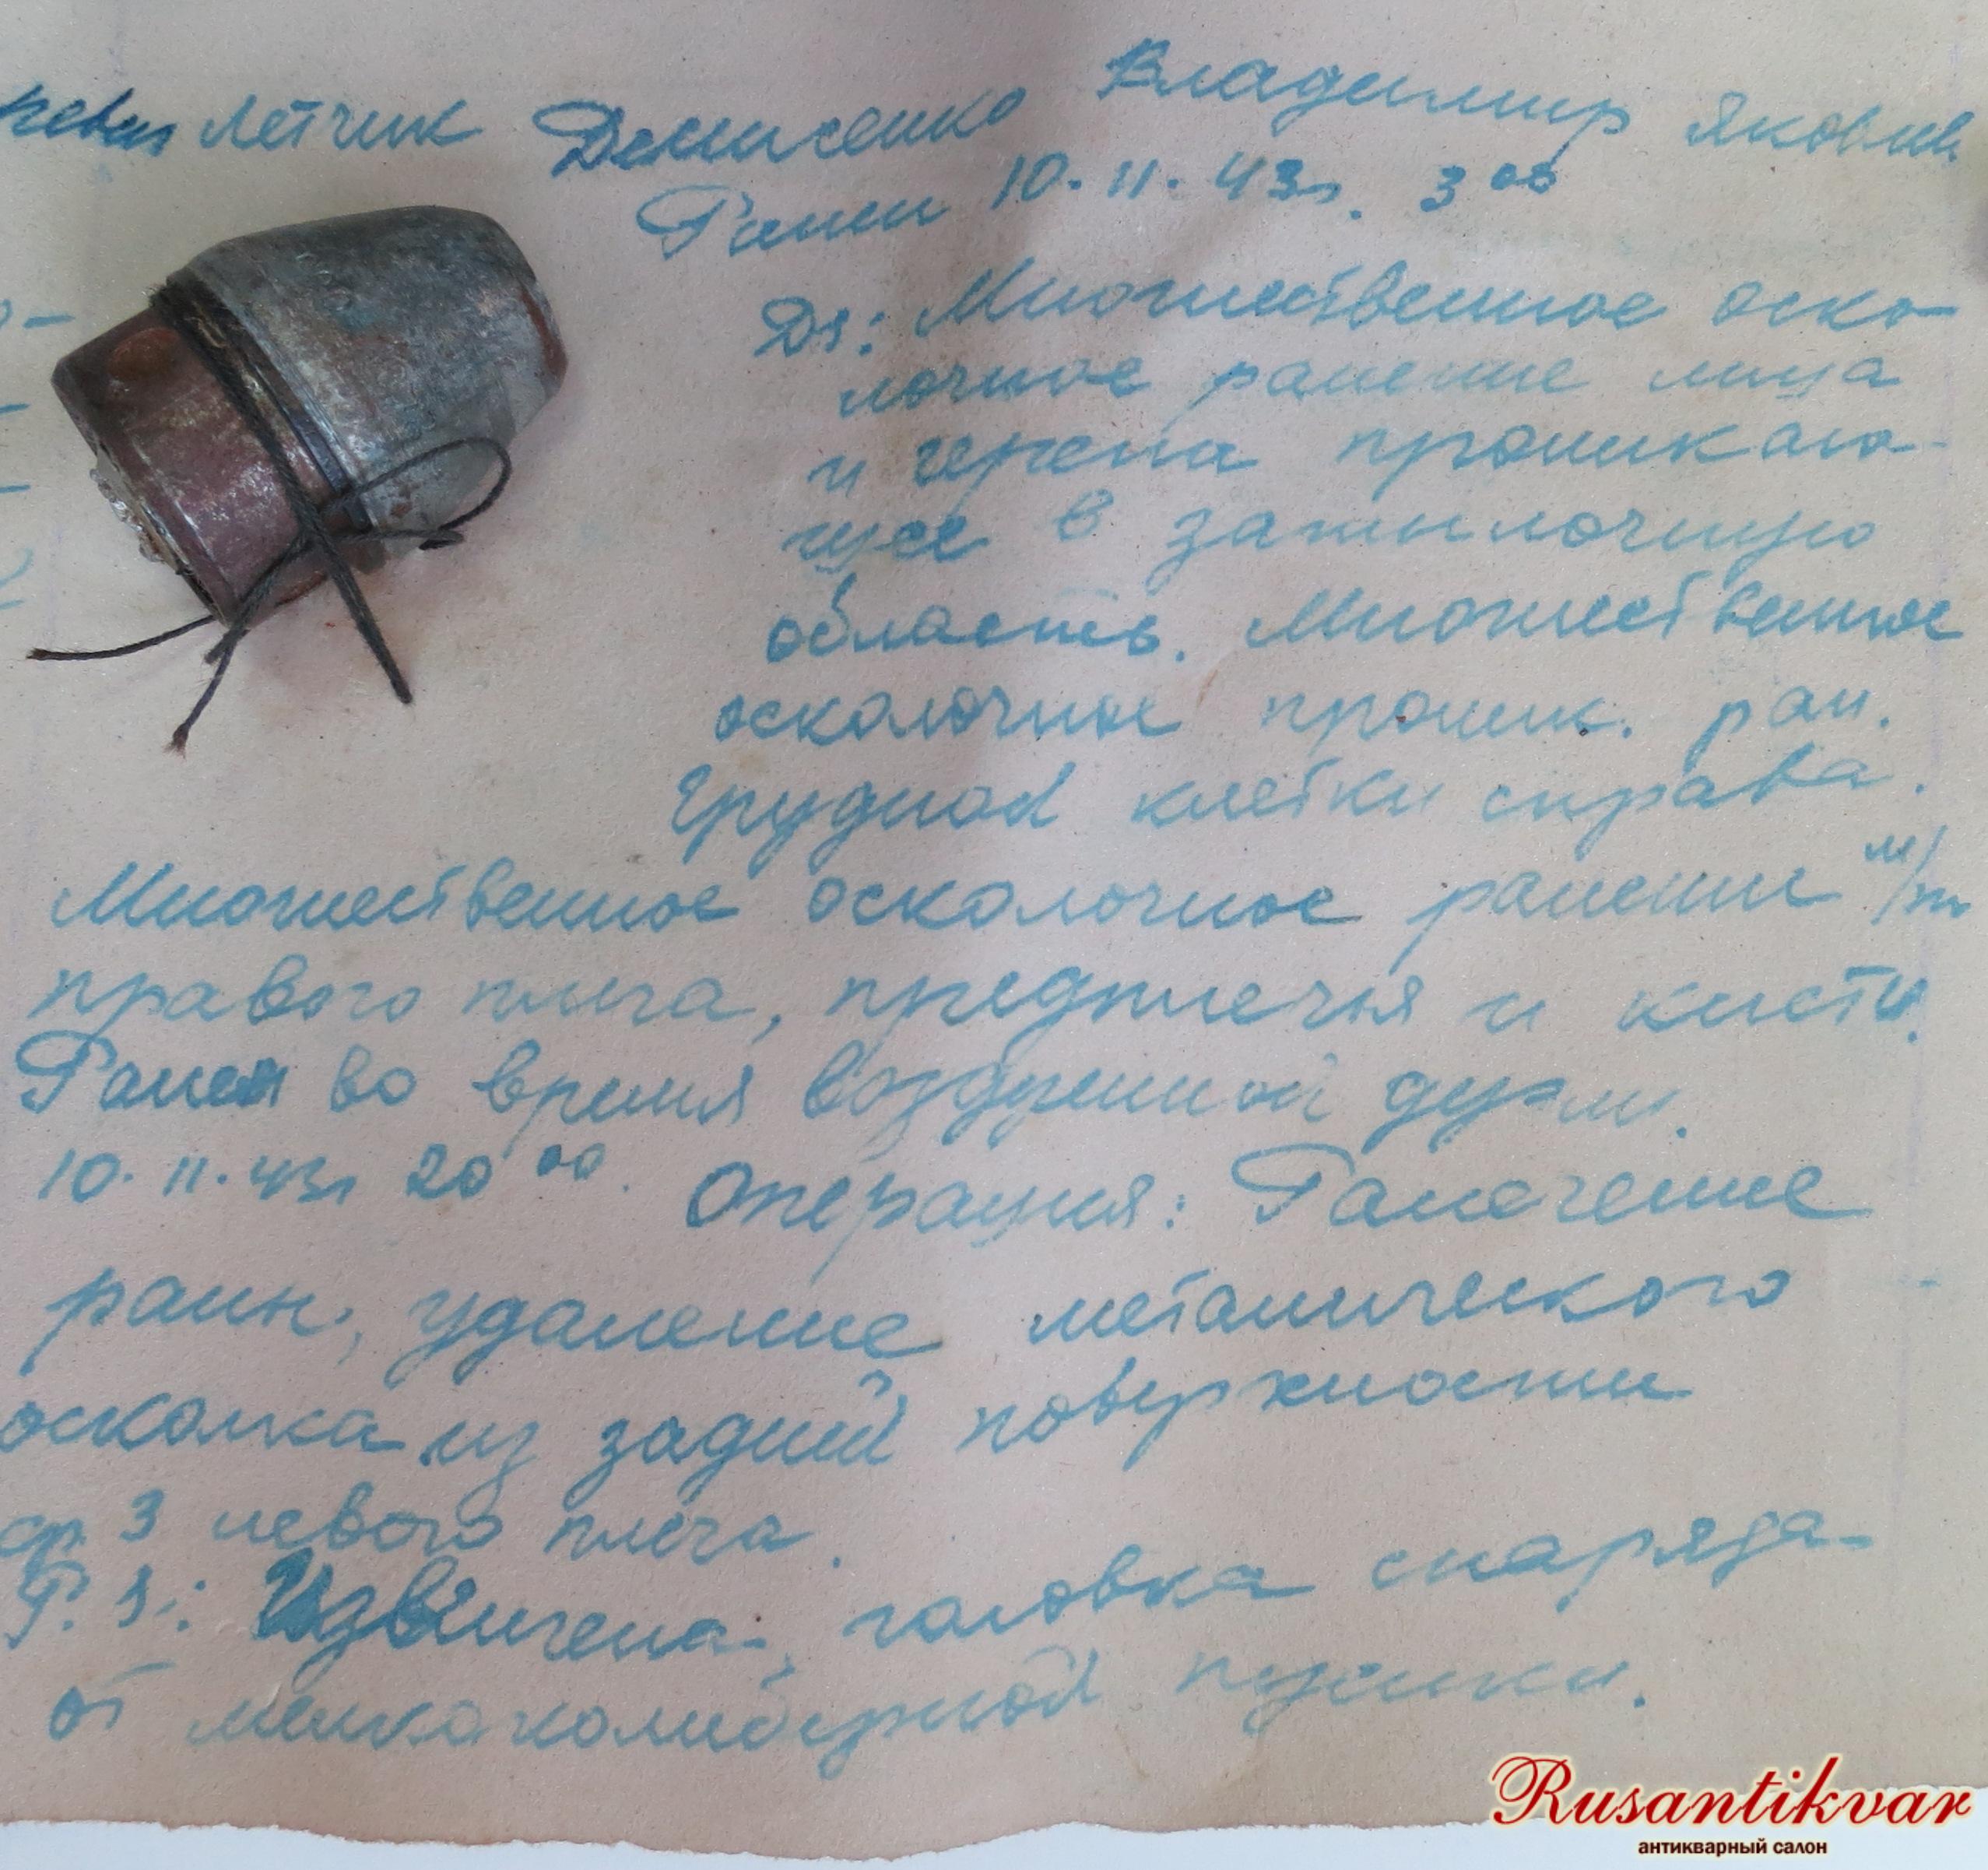 летчик Денисенко Владимир Яковлев
Ранен 10.11.43г. 3⁰⁰
Ds: Множественное оско-
лочное ранение лица
и черепа проникаю-
щее в затылочную
область. Множественное
осколочное проник. ран.
грудной клетки справа.
Множественное осколочное ранение м/тк
правого плеча, предплечья и кисти.
Ранен во время воздушной дуэли.
10.11.43г 20⁰⁰. Операция: Рассечение
раны, удаление металического
осколка из задней поверхности
ср. 3 левого плеча.
P.S.: Извлечена, головка снаряда
от мелкокалиберной пушки.
Rusantikvar
антикварный салон